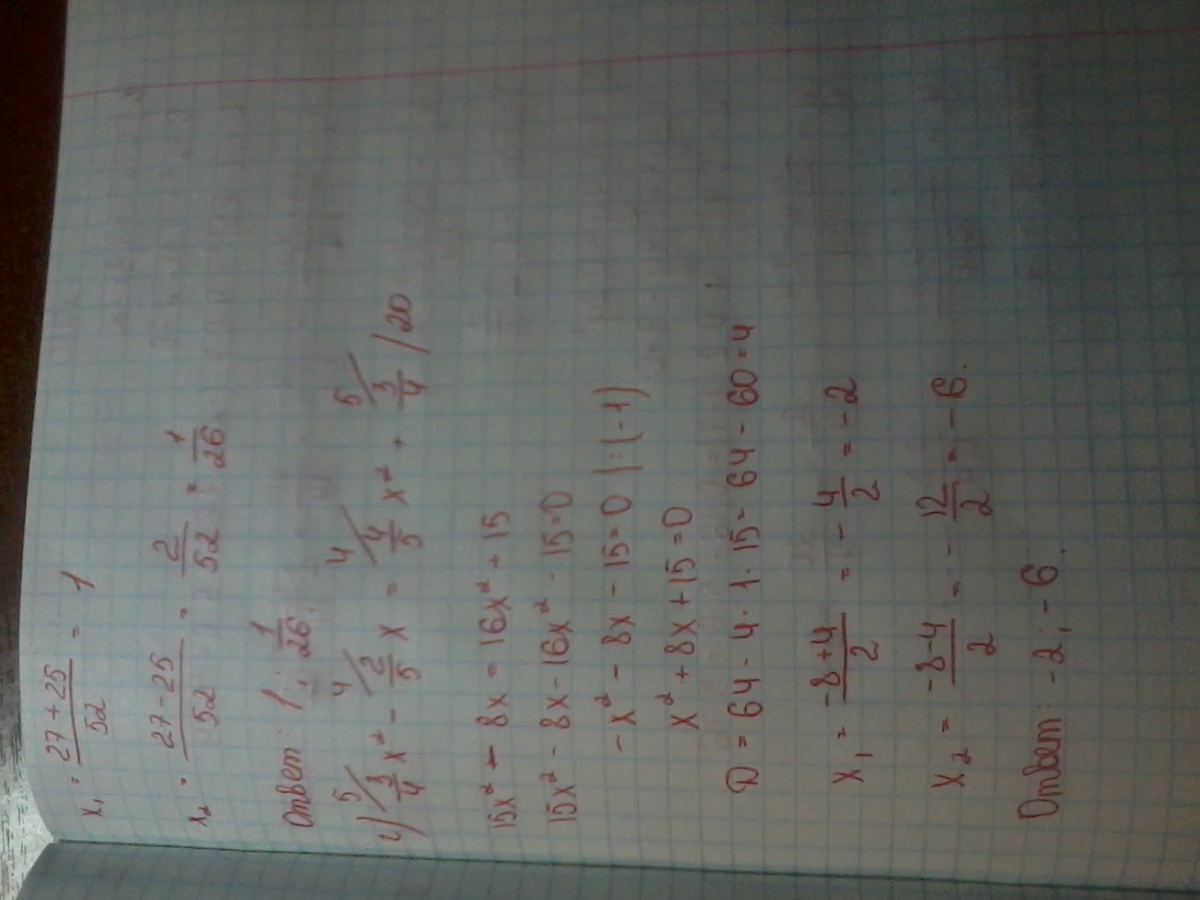 x₁ = (27 + 25)/52 = 1
x₂ = (27 - 25)/52 = 2/52 = 1/26
Ответ: 1; 1/26.
2) ⁵/ 3/4 x² - ⁴/ 2/5 x = ⁴/ 4/5 x² + ⁵/ 3/4 / 20
15x² - 8x = 16x² + 15
15x² - 8x - 16x² - 15 = 0
-x² - 8x - 15 = 0 |:(-1)
x² + 8x + 15 = 0
D = 64 - 4 · 1 · 15 = 64 - 60 = 4
x₁ = (-8 + 4)/2 = - 4/2 = -2
x₂ = (-8 - 4)/2 = - 12/2 = -6.
Ответ: -2; -6.